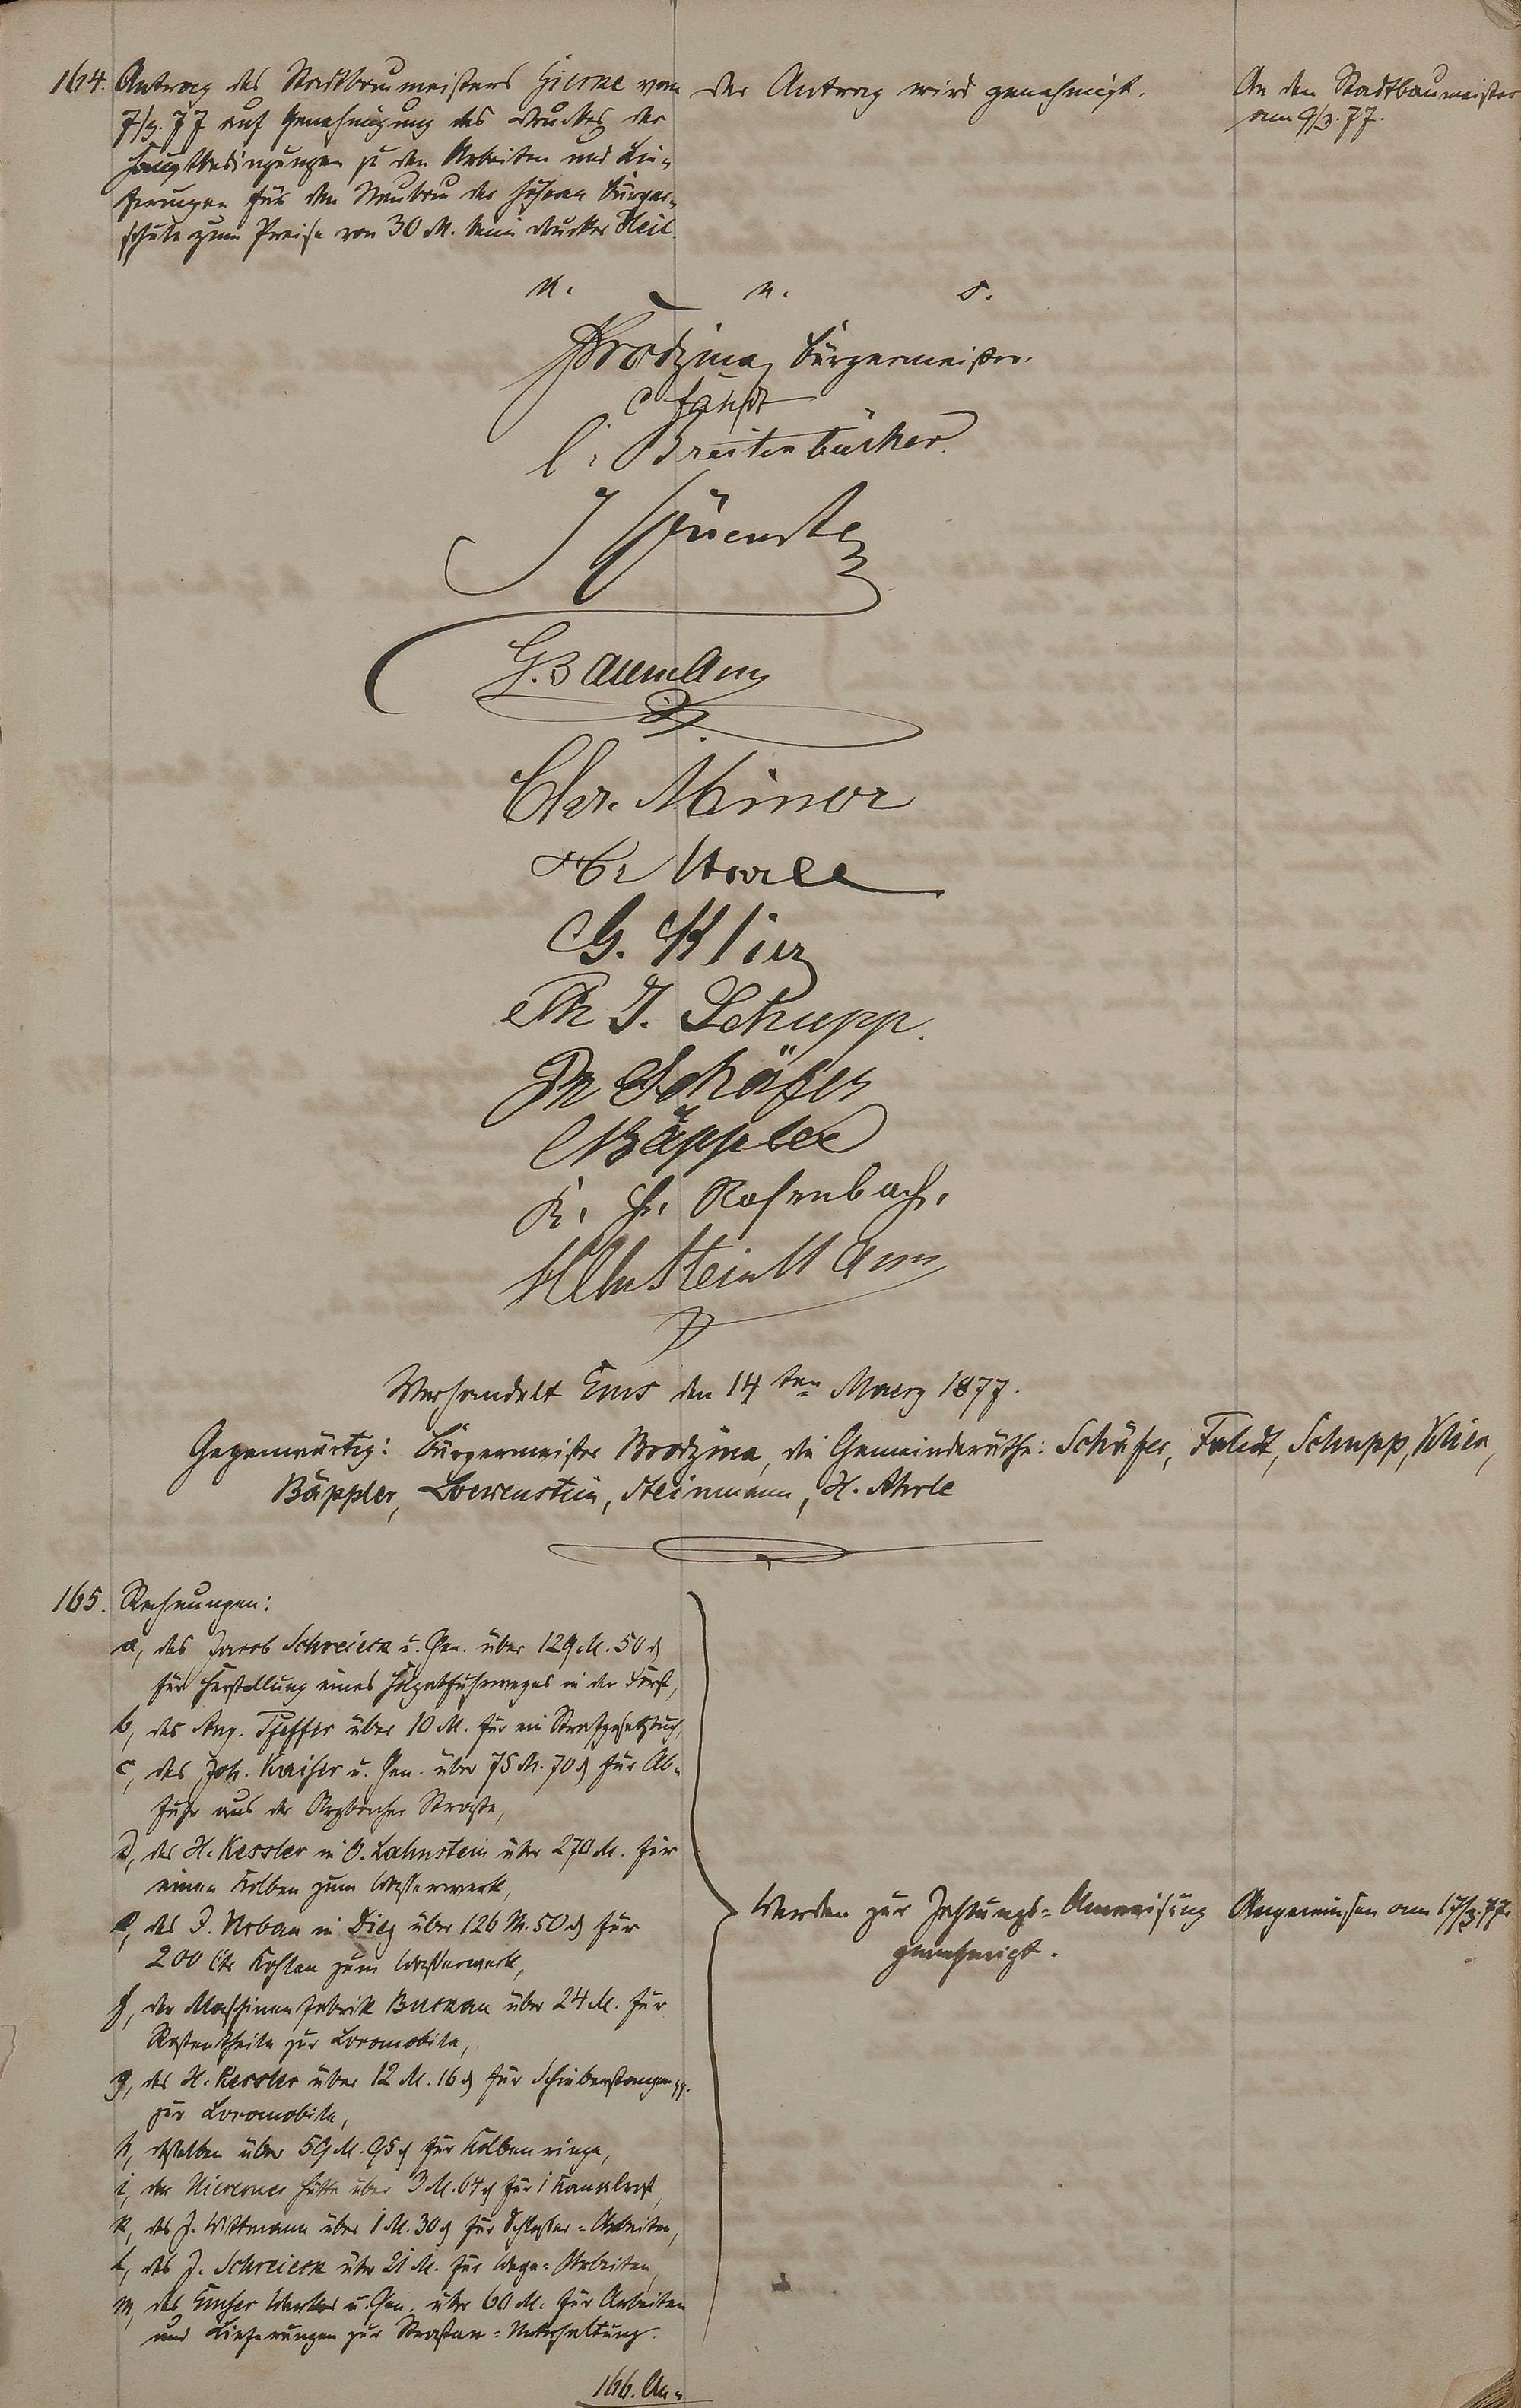 164. Antrag des Stadtbaumeisters Gierke vom
7/3. 77 auf Genehmigung des Druckes der
Hauptbedingungen zu den Arbeiten und Lie-
ferungen für den Neubau der höheren Bürger-
schule zum Preise von 30 M. beim Drucker
Der Antrag wird genehmigt.
An den Stadtbaumeister
am 9/3. 77.
v. n. s.
Brodzina, Bürgermeister.
Faust
Breitenbücher
G. Baumann
Chr. Minor
G. Klier
Ph J. Schupp.
Ph Schäfer
Bäppler
K. H. Rosenbach.
Steinmann
Verhandelt Ems den 14ten Maerz 1877.
Gegenwärtig: Bürgermeister Brodzina, die Gemeinderäthe: Schäfer, Schupp, Klier,
Bäppler, Loewenstein, Steinmann, H. Ahrle
165. Rechnungen:
a, des Jacob Schreieck u. Gen. über 129 M. 50 ₰
für Herstellung eines Holzabfuhrweges in der Forst,
b, des Aug. Pfeffer über 10 M. für ein Strafgesetzbuch,
c, des Joh. Kaiser u. Gen. über 75 M. 70 ₰ für Ab-
fuhr aus der Arzbacher Straße,
d, des H. Kessler in O. Lahnstein über 270 M. für
einen Kolben zum Wasserwerk,
e, des J. Urban in Diez über 126 M. 50 ₰ für
200 Ctr Kohlen zum Wasserwerk,
f, der Maschinenfabrik Buckau über 24 M. für
Rostentheile zur Locomobile,
g, des H. Kessler über 12 M. 16 ₰ für Schieberstangen pp.
zur Locomobile,
h, desselben über 59 M. 95 ₰ für Kolbenringe,
i, der Nieverner Hütte über 3 M. 64 ₰ für 1 Kanalrost,
k, des J. Wittmann über 1 M. 30 ₰ für Schlosser-Arbeiten,
l, des J. Schreieck über 21 M. für Wege-Arbeiten,
m, des Emser Werkes u. Gen. über 60 M. für Arbeiten
und Lieferungen zur Straßen-Unterhaltung.
Werden zur Zahlungs-Anweisung
genehmigt.
Angewiesen am 17/3. 77.
166. An-